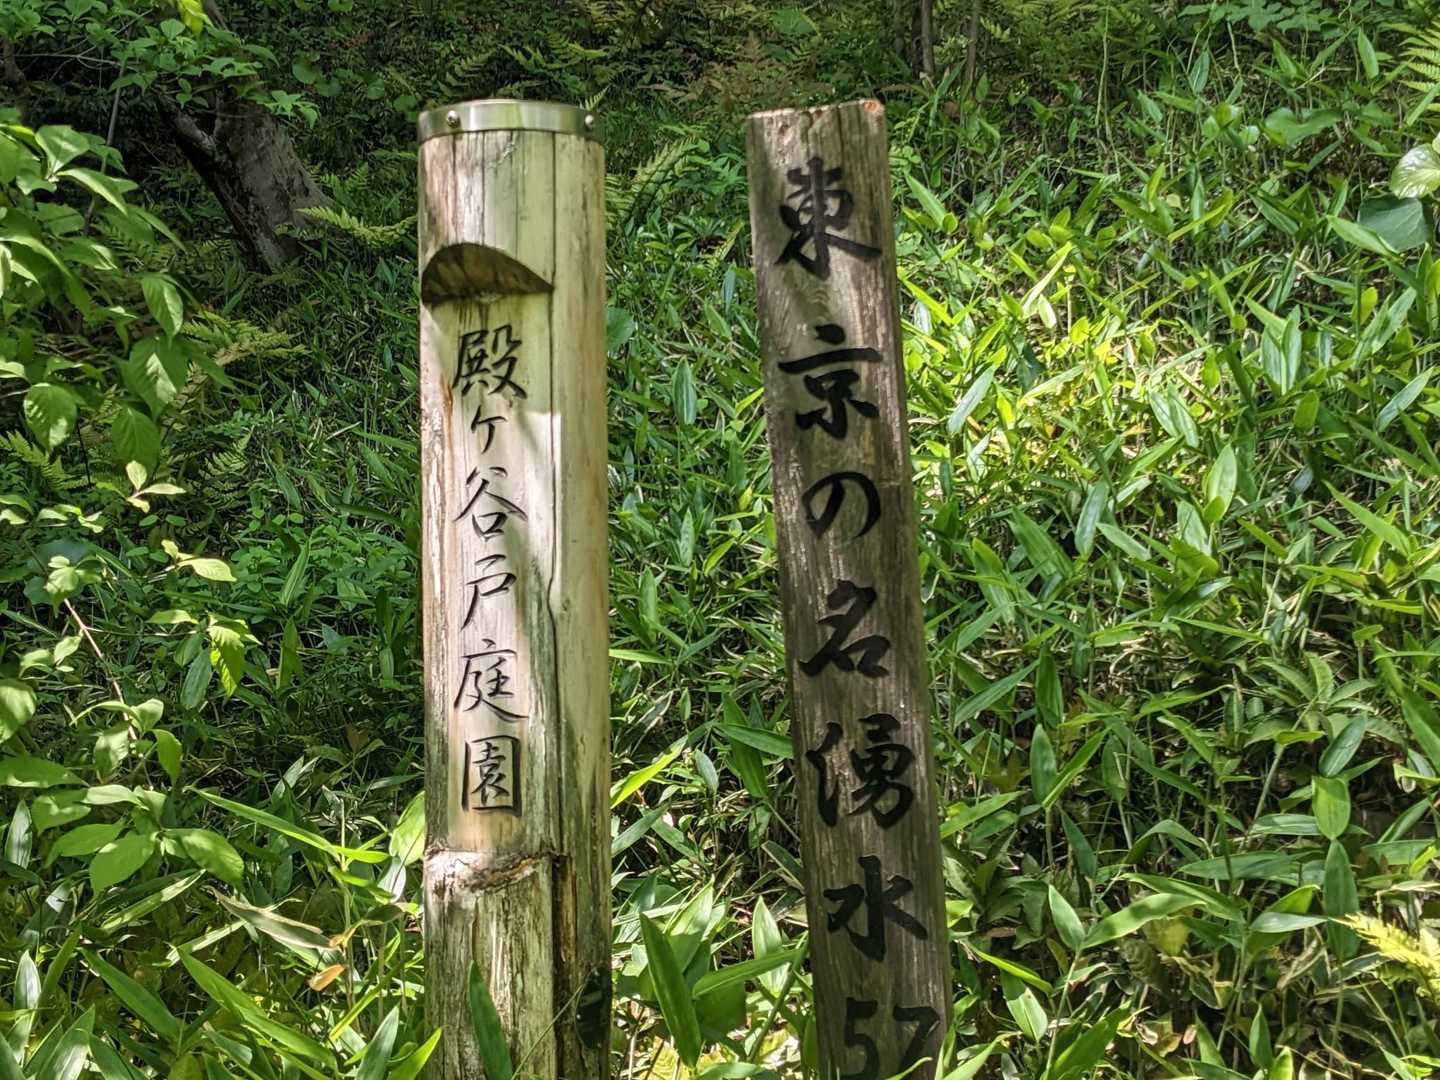 殿ヶ谷戸庭園
東京の名湧水57